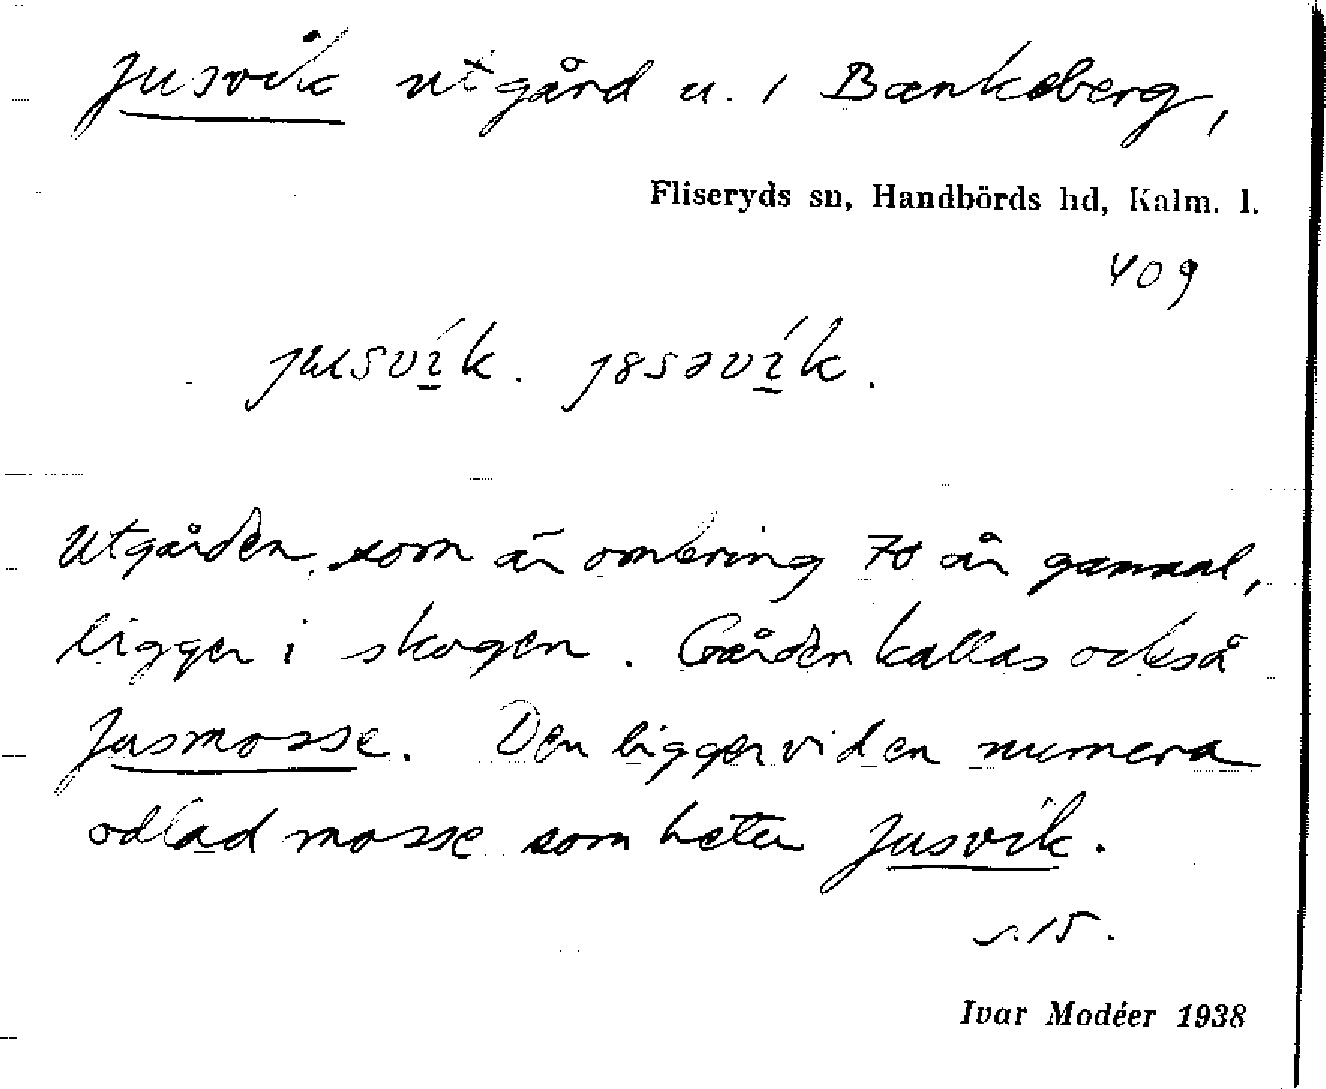 Jusvik utgård u. 1 Bankeberg,
Fliseryds sn, Handbörds hd, Kalm. l.
409
Utgården, som är omkring 70 år gammal,
ligger i skogen. Gården kallas också
Jusmosse. Den ligger vid en numera
odlad mosse som heter Jusvik.
s. 15.
Ivar Modéer 1938